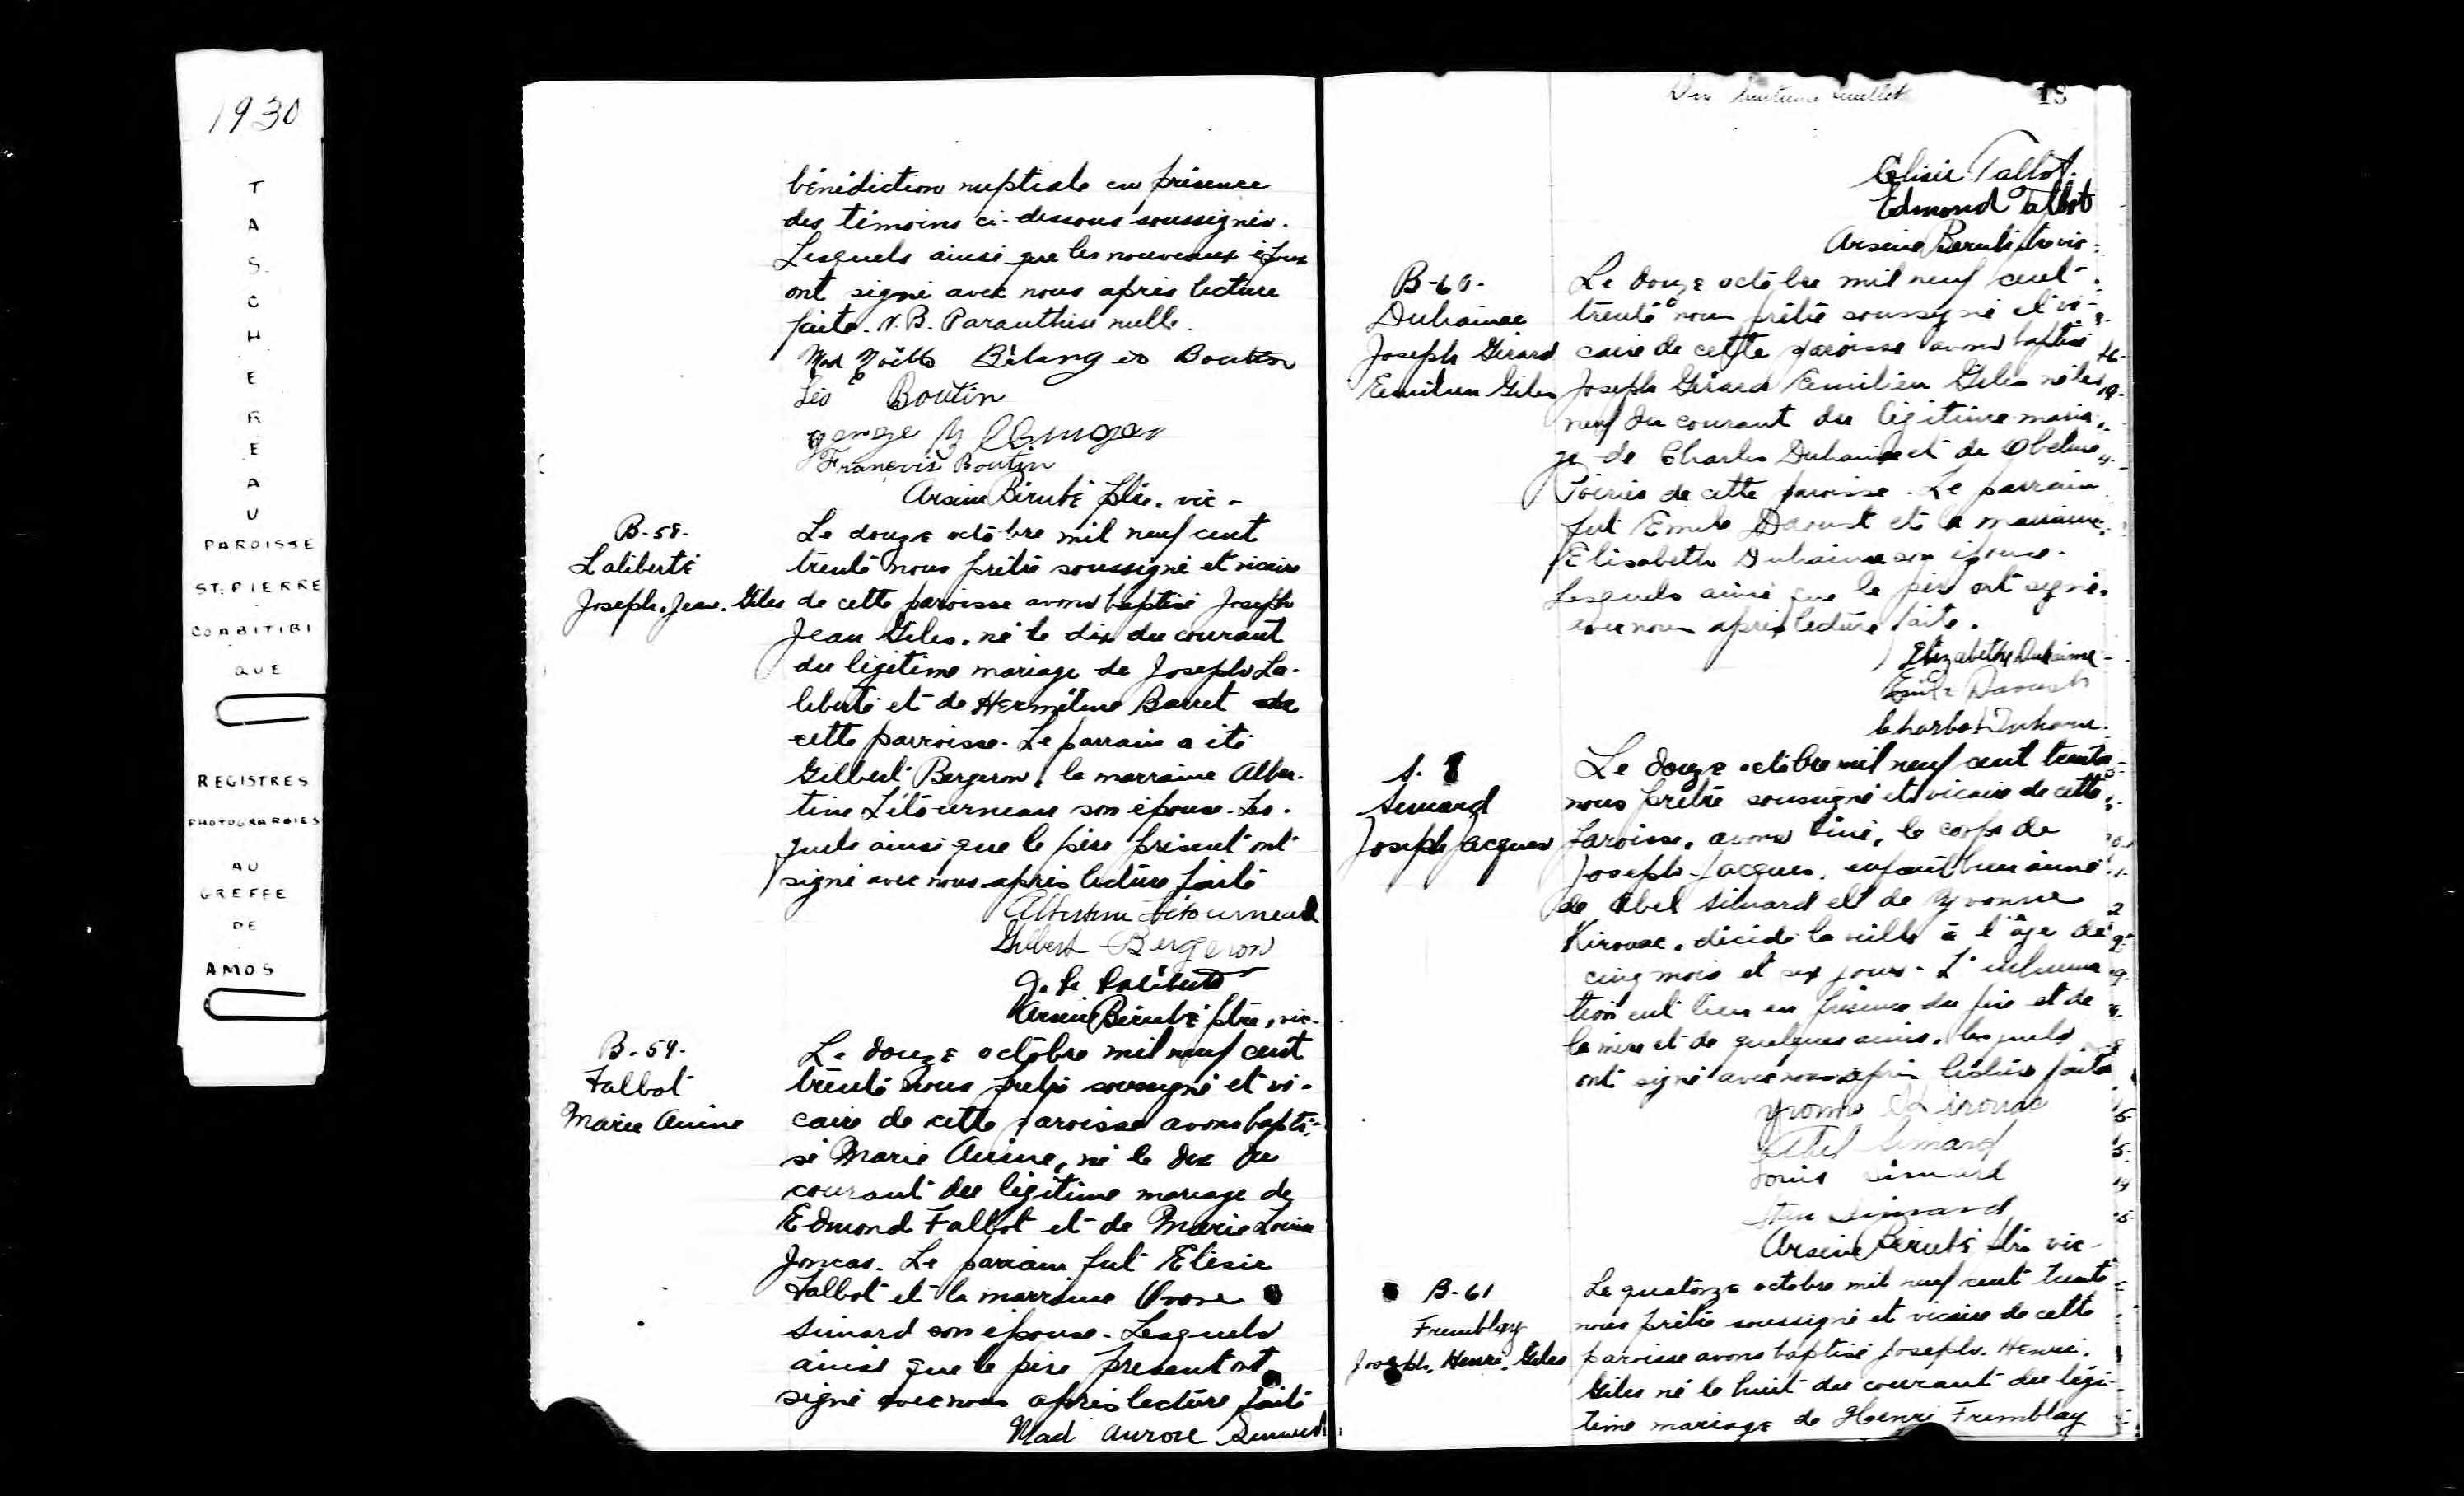 1930
TASCHEREAU
PAROISSE
ST. PIERRE
CO ABITIBI
QUE
REGISTRES
PHOTOGRAPHIES
AU
GREFFE
DE
AMOS
bénédiction nuptiale en présence
des témoins ci-dessous soussignés.
Lesquels ainsi que les nouveaux époux
ont signé avec nous après lecture
faite. N.B. Paranthèse nulle.
Mad Bélanger Boutin
Léo Boutin
François Boutin
Arsène Bérubé ptre. vic-
B-58-
Laliberté
Joseph. Jean. Giles
Le douze octobre mil neuf cent
trente nous prêtre soussigné et vicaire
de cette paroisse avons baptisé Joseph
Jean Giles. né le dix du courant
du légitime mariage de Joseph La-
liberté et de Barret de
cette parroisse. Le parrain a été
Gilbert Bergeron, la marraine Alber-
tine Létourneau son épouse. Les-
quels ainsi que le père présent ont
signé avec nous après lecture faite
Albertine Létourneau
Gilbert Bergeron
Arsène Bérubé ptre, vic.
B-59-
Talbot
Marie
Le douze octobre mil neuf cent
trente nous prêtre soussigné et vi-
caire de cette paroisse avons bapti-
sé Marie, né le dix du
courant du légitime mariage de
Edmond Talbot et de Marie
Joncas. Le parrain fut Elisie
Talbot et la marraine
Simard son épouse. Lesquels
ainsi que le père présent ont
signé avec nous après lecture faite
Mad Aurore Simard
Dix huitième feuillet
18
Talbot
Edmond Talbot
Arsène Bérubé ptre vic-
B-60-
Duhaime
Joseph Gérard
Emilien Giles
Le douze octobre mil neuf cent
trente nous prêtre soussigné et vi-
caire de cette paroisse avons baptisé
Joseph Gérard Emilien Giles né le
neuf du courant du légitime maria-
ge de Charles Duhaime et de
de cette paroisse. Le parrain
fut Emile Daoust et la marraine
Elisabeth Duhaime son épouse.
Lesquels ainsi que le père ont signé
avec nous après lecture faite.
Elizabeth Duhaime
Emile Daoust
Duhaime
S. 8
Simard
Joseph Jacques
Le douze octobre mil neuf cent trente
nous prêtre soussigné et vicaire de cette
paroisse, avons le corps de
Joseph-Jacques, enfant bien aimé
de Abel Simard et de Yvonne
Kirouac, décédé la veille à l'âge de
cinq mois et six jours. L'inhuma
tion eut lieu en présence du père et de
la mère et de quelques amis, lesquels
ont signé avec nous après lecture faite
Yvonne Kirouac
Abel Simard
Louis Simard
Simard
Arsène Bérubé ptre vic-
B-61
Tremblay
Joseph. Henri. Giles
Le quatorze octobre mil neuf cent trente
nous prêtre soussigné et vicaire de cette
paroisse avons baptisé Joseph. Henri.
Giles né le huit du courant du légi-
time mariage de Henri Tremblay